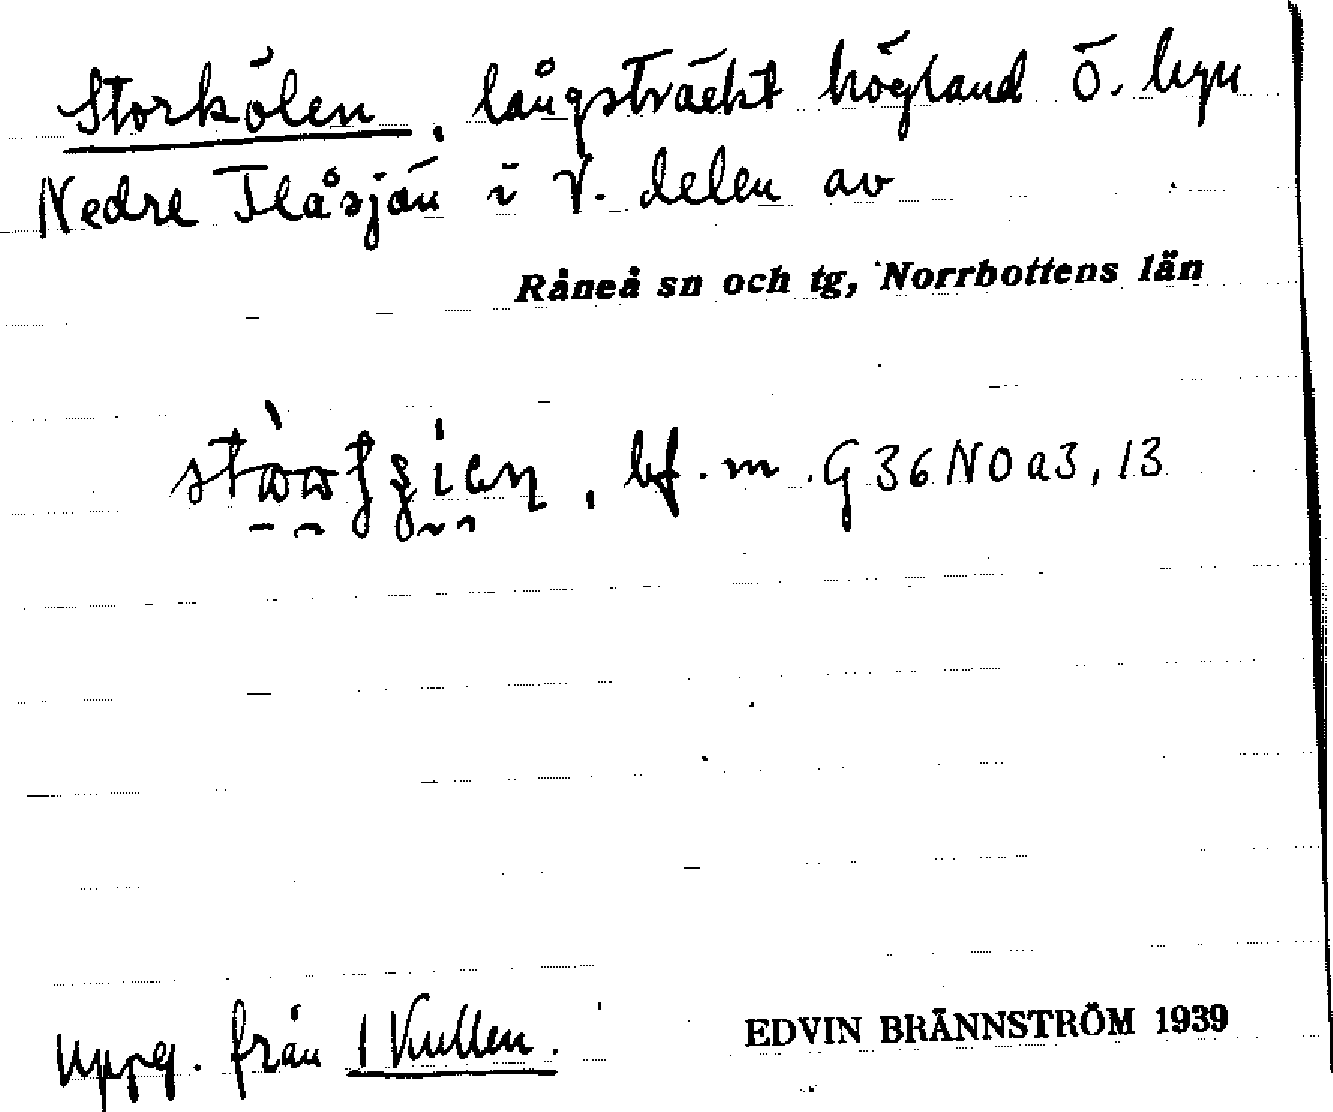 Storkölen, långsträckt högland ö. byn
Nedre Flåsjön i V. delen av
Råneå sn och tg, Norrbottens län
bf. m. G36NOa3,13
Uppg. från 1 Kullen.
EDVIN BRÄNNSTRÖM 1939